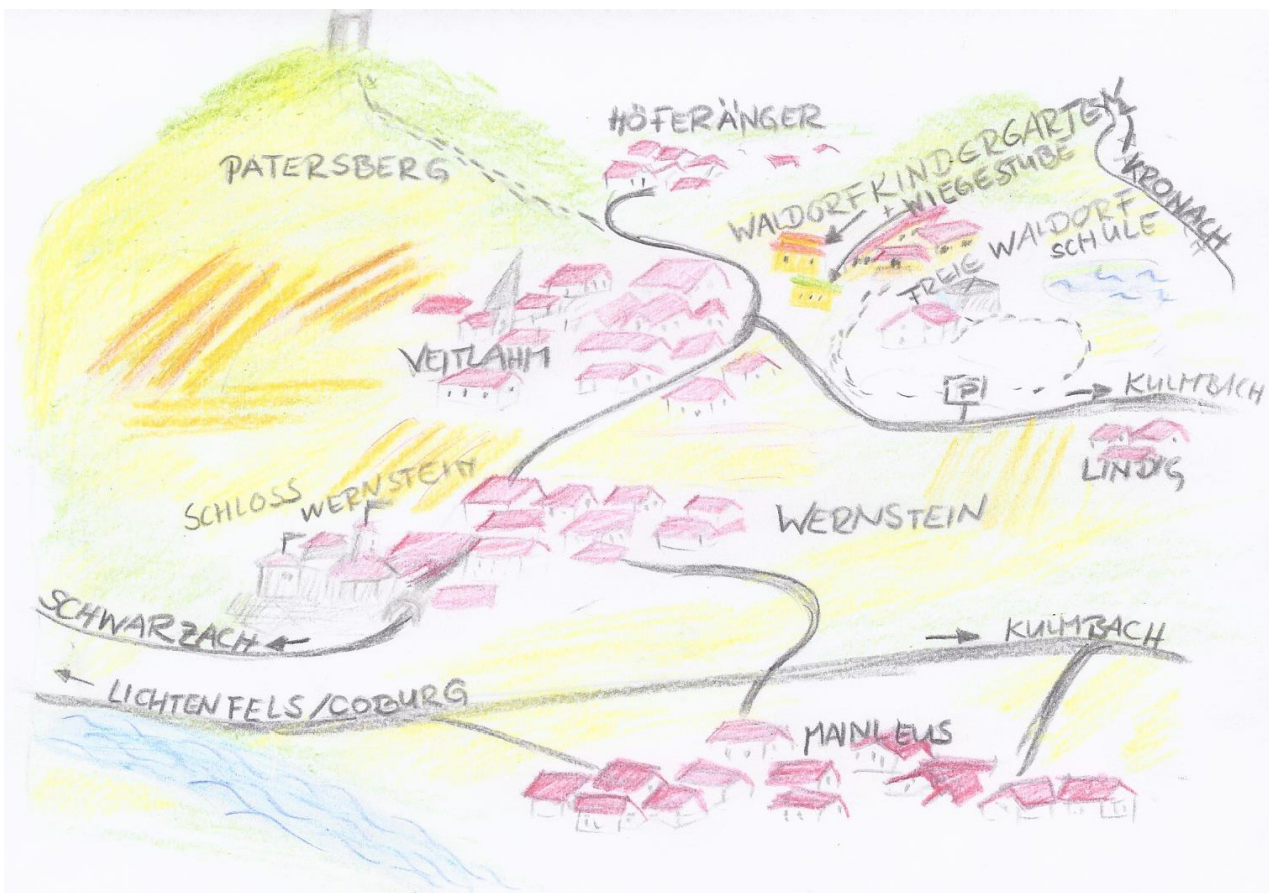 HÖFERÄNGER
PATERSBERG
WALDORFKINDERGARTEN
+ WIEGESTUBE
KRONACH
FREIE WALDORF
SCHULE
VEITLAHM
P
→ KULMBACH
LINDIG
SCHLOSS WERNSTEIN
WERNSTEIN
SCHWARZACH ←
→ KULMBACH
← LICHTENFELS/COBURG
MAINLEUS